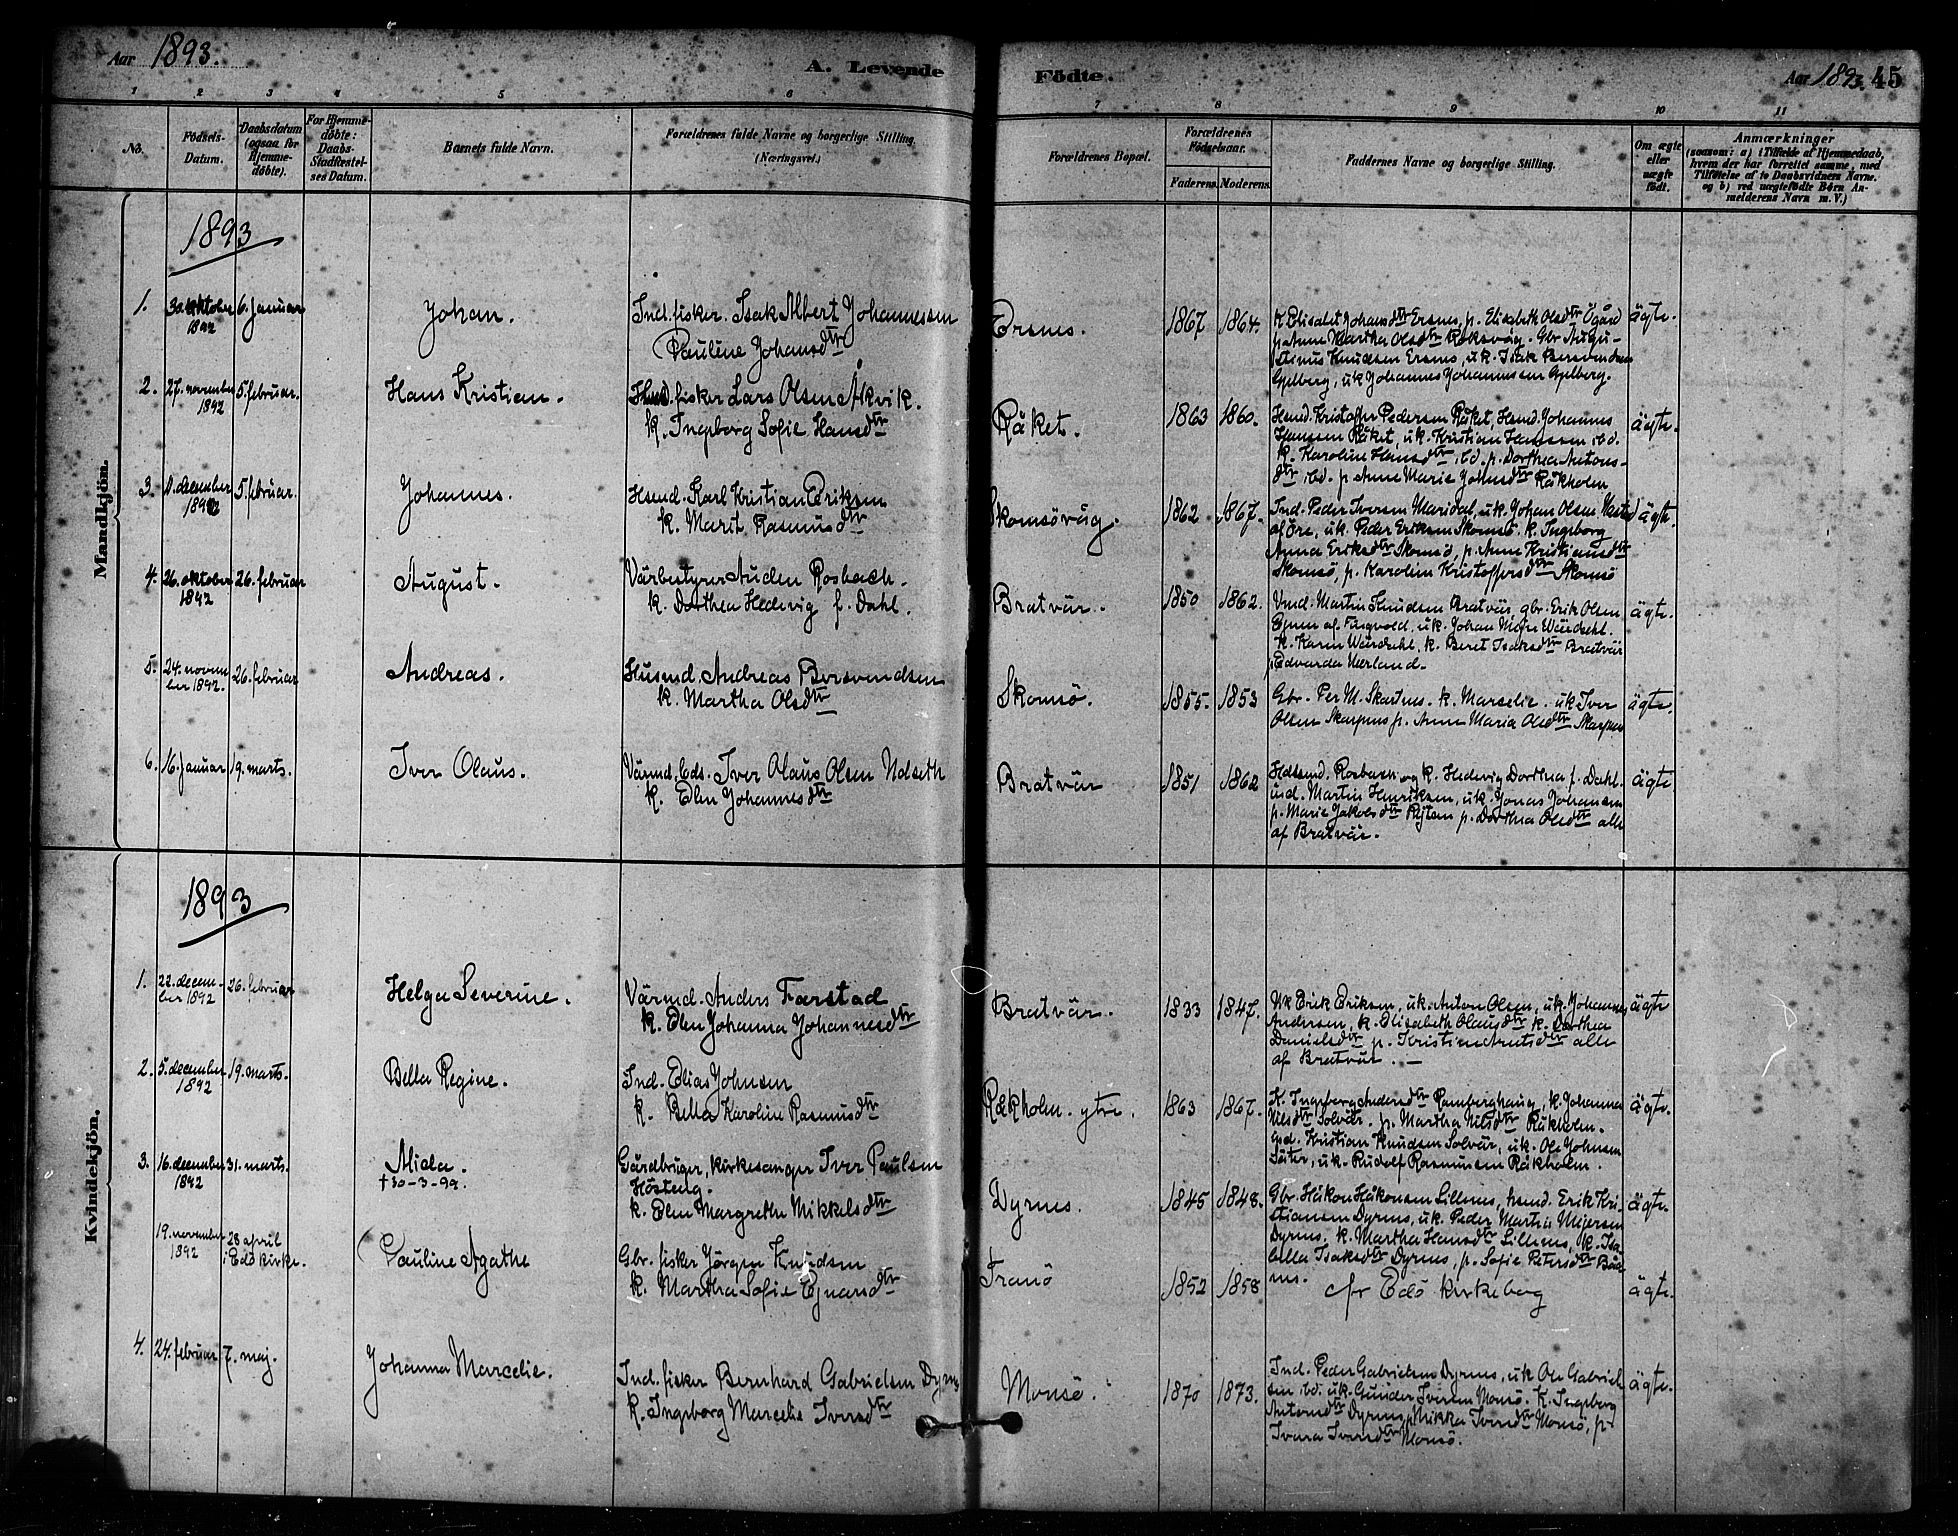 Aar 1893.
A. Levende Fødte.
Aar 1893. 45
1 2 3 4 5 6 7 8 9 10 11
No.
Fødsels-Datum.
Daabsdatum (ogsaa for Hjemmedøbte).
For Hjemmedøbte: Daabs-Stadfæstelses Datum.
Barnets fulde Navn.
Forældrenes fulde Navne og borgerlige Stilling. (Næringsvei.)
Forældrenes Bopæl.
Forældrenes Fødselsaar.
Faderens. Moderens.
Faddernes Navne og borgerlige Stilling.
Om ægte eller uægte født.
Anmærkninger
(saasom: a) i Tilfælde af Hjemmedaab,
hvem der har forrettet samme, med
Tilføielse af to Daabsvidners Navne.
og b) ved uægtefødte Børn An-
melderens Navn m. V.)
Mandkjön.
1893
1. 30 oktober 1892 6. januar Johan.
Ind. fisker. Isak Albert Johannessen
Pauline Johansdtr
Ersnes. 1867 1864.
K Elisabet Johansdtr Ersnes, p. Elisabeth Olsdtr Ögård
p Anne Martha Olsdtr Råksvåg. Gbr Augu-
stinus Knudsen Ersnes, uk. Isak Bersvendsen
Gjelberg, uk Johannes Johannessen Gjelberg.
ägte.
2. 27. november 1892 5. februar. Hans Kristian.
Husd. fisker Lars Olsen Åkvik.
k. Ingeborg Sofie Hansdtr
Råket. 1863 1860.
Husmd. Kristoffer Pedersen Råket, Husmd. Johannes
Hanssen Råket, uk. Kristian Hanssen ibd.
k. Karoline Hansdtr, ibd. p. Dorthea Antons-
dtr ibd. p Anne Marie Johnsdtr Råkholm
ägte.
3. 11. december 1892 5. februar. Johannes.
Hsmd. Karl Kristian Eriksen
k. Marit Rasmusdtr
Skomsövåg. 1862. 1867.
Ind. Peder Iversen Maridal, uk. Johan Olsen
af Öre, uk. Peder Eriksen Skomsö. k. Ingeborg
Anna Eriksdtr Skomsö, p. Anne Kristiansdtr
Skomsö, p. Karoline Kristoffersdtr Skomsö
ägte.
4. 26. oktober 1892 26. februar August.
Värbestyrer Auden Rosbach.
k. Dorthea Hedevig f. Dahl.
Bratvär. 1850 1862.
Vmd. Martin Knudsen Bratvär, gbr. Erik Olsen
af Tingvold, uk. Johan
k. Karen k. Beret Isaksdtr Bratvär
p. Edvarda Nerland.
ägte.
5. 24. november 1892. 26. februar Andreas.
Husmd. Andreas Bersvendsen
k. Martha Olsdtr
Skomsö. 1855. 1853
Gbr. Per M. Skarpnes. k. Marselie. uk Iver
Olsen Skarpnes p. Anne Maria Olsdtr Skarpnes
ägte.
6. 16. januar 19. marts. Iver Olaus.
Värmd. Eds. Iver Olaus Olsen Nolseth
k. Elen Johannesdtr
Bratvär 1851 1862
Rosbach og k. Hedevig Dorthea f. Dahl.
ind. Martin Henriksen, uk. Jonas Johansen
p. Marie Jakobsdtr p. Dorthea Olsdtr alle
af Bratvär.
ägte
Kvindekjön.
1893
1. 22. december 1892 26. februar Helga Severine.
Värmd. Anders Farstad
k. Elen Johanna Johannesdtr
Bratvär. 1833 1847.
Uk Erik Eriksen, uk. Anton Olsen, uk. Johannes
Andersen, k. Elisabeth Olausdtr k. Dorthea
Danielsdtr p. Kristine dtr alle
af Bratvär. —
ägte
2. 5. december 1892 19. marts. Bella Regine.
Ind. Elias Johnsen
k. Bella Karoline Rasmusdtr
Råkholm. ytre. 1863 1867.
K. Ingeborg Andersdtr Ramberghaug, k. Johanna
Nilsdtr Solvär. p. Martha Nilsdtr Råkholm.
Gsd. Kristian Knudsen Solvär, uk. Ole Johnsen
Säter, uk. Rudolf Rasmussen Råkholm.
ägte.
3. 16. december 1892 31. marts. Alida.
† 30-3-99.
Gårdbruger, kirkesanger Iver Paulsen
Hösteng.
k. Elen Margrethe Mikkelsdtr
Dyrnes. 1845 1848.
Gbr. Håkon Håkonsen Lillenes, hsmd. Erik Kri-
stiansen Dyrnes, uk. Peder Martin Mejersen
Dyrnes, k. Martha Hansdtr Lillenes, k. Isa-
bella Isaksdtr Dyrnes, p. Sofie Petersdtr Båt-
nes.
ägte.
19. november 1892 28 april i Edö kirke. Pauline Agathe
Gbr. fisker Jörgen Knudsen
k. Martha Sofie Ejnarsdtr
Tranö 1852 1858
cfr Edö kirkebog
ägte.
4. 24. februar 7. maj. Johanna Marcelie.
Ind. fisker Bernhard Gabrielsen Dyrnes
k. Ingeborg Marcelie Iversdtr
Monsö. 1870 1873.
Ind. Peder Gabrielsen Dyrnes, uk Ole Gabriel-
sen ibd. uk. Gunder Iversen Monsö. K. Ingeborg
Antonsdtr Dyrnes, p. Mikka Iversdtr Monsö, p.
Ivara Iversdtr Monsö.
ägte.